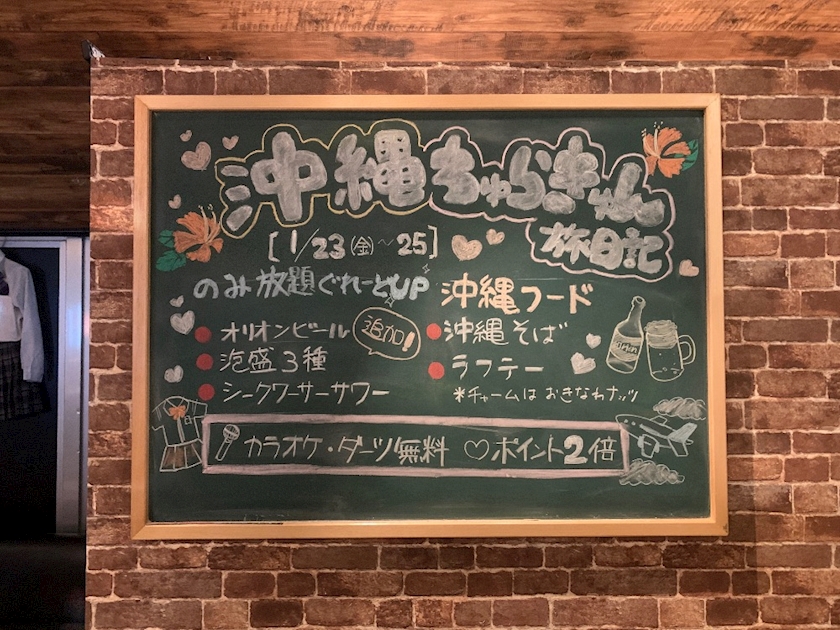 沖縄ちゅらきゅん
旅日記
[1/23(金)~25]
のみ放題ぐれーどUP
オリオンビール
追加!
泡盛3種
シークワーサーサワー
沖縄フード
沖縄そば
ラフテー
*チャームは おきなわナッツ
カラオケ・ダーツ無料 ♡ポイント2倍